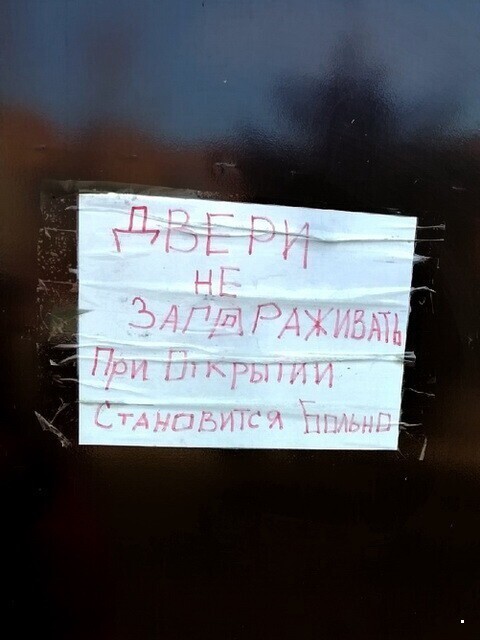 ДВЕРИ
НЕ
ЗАГДРАЖИВАТЬ
При Открытии
Становится Больно